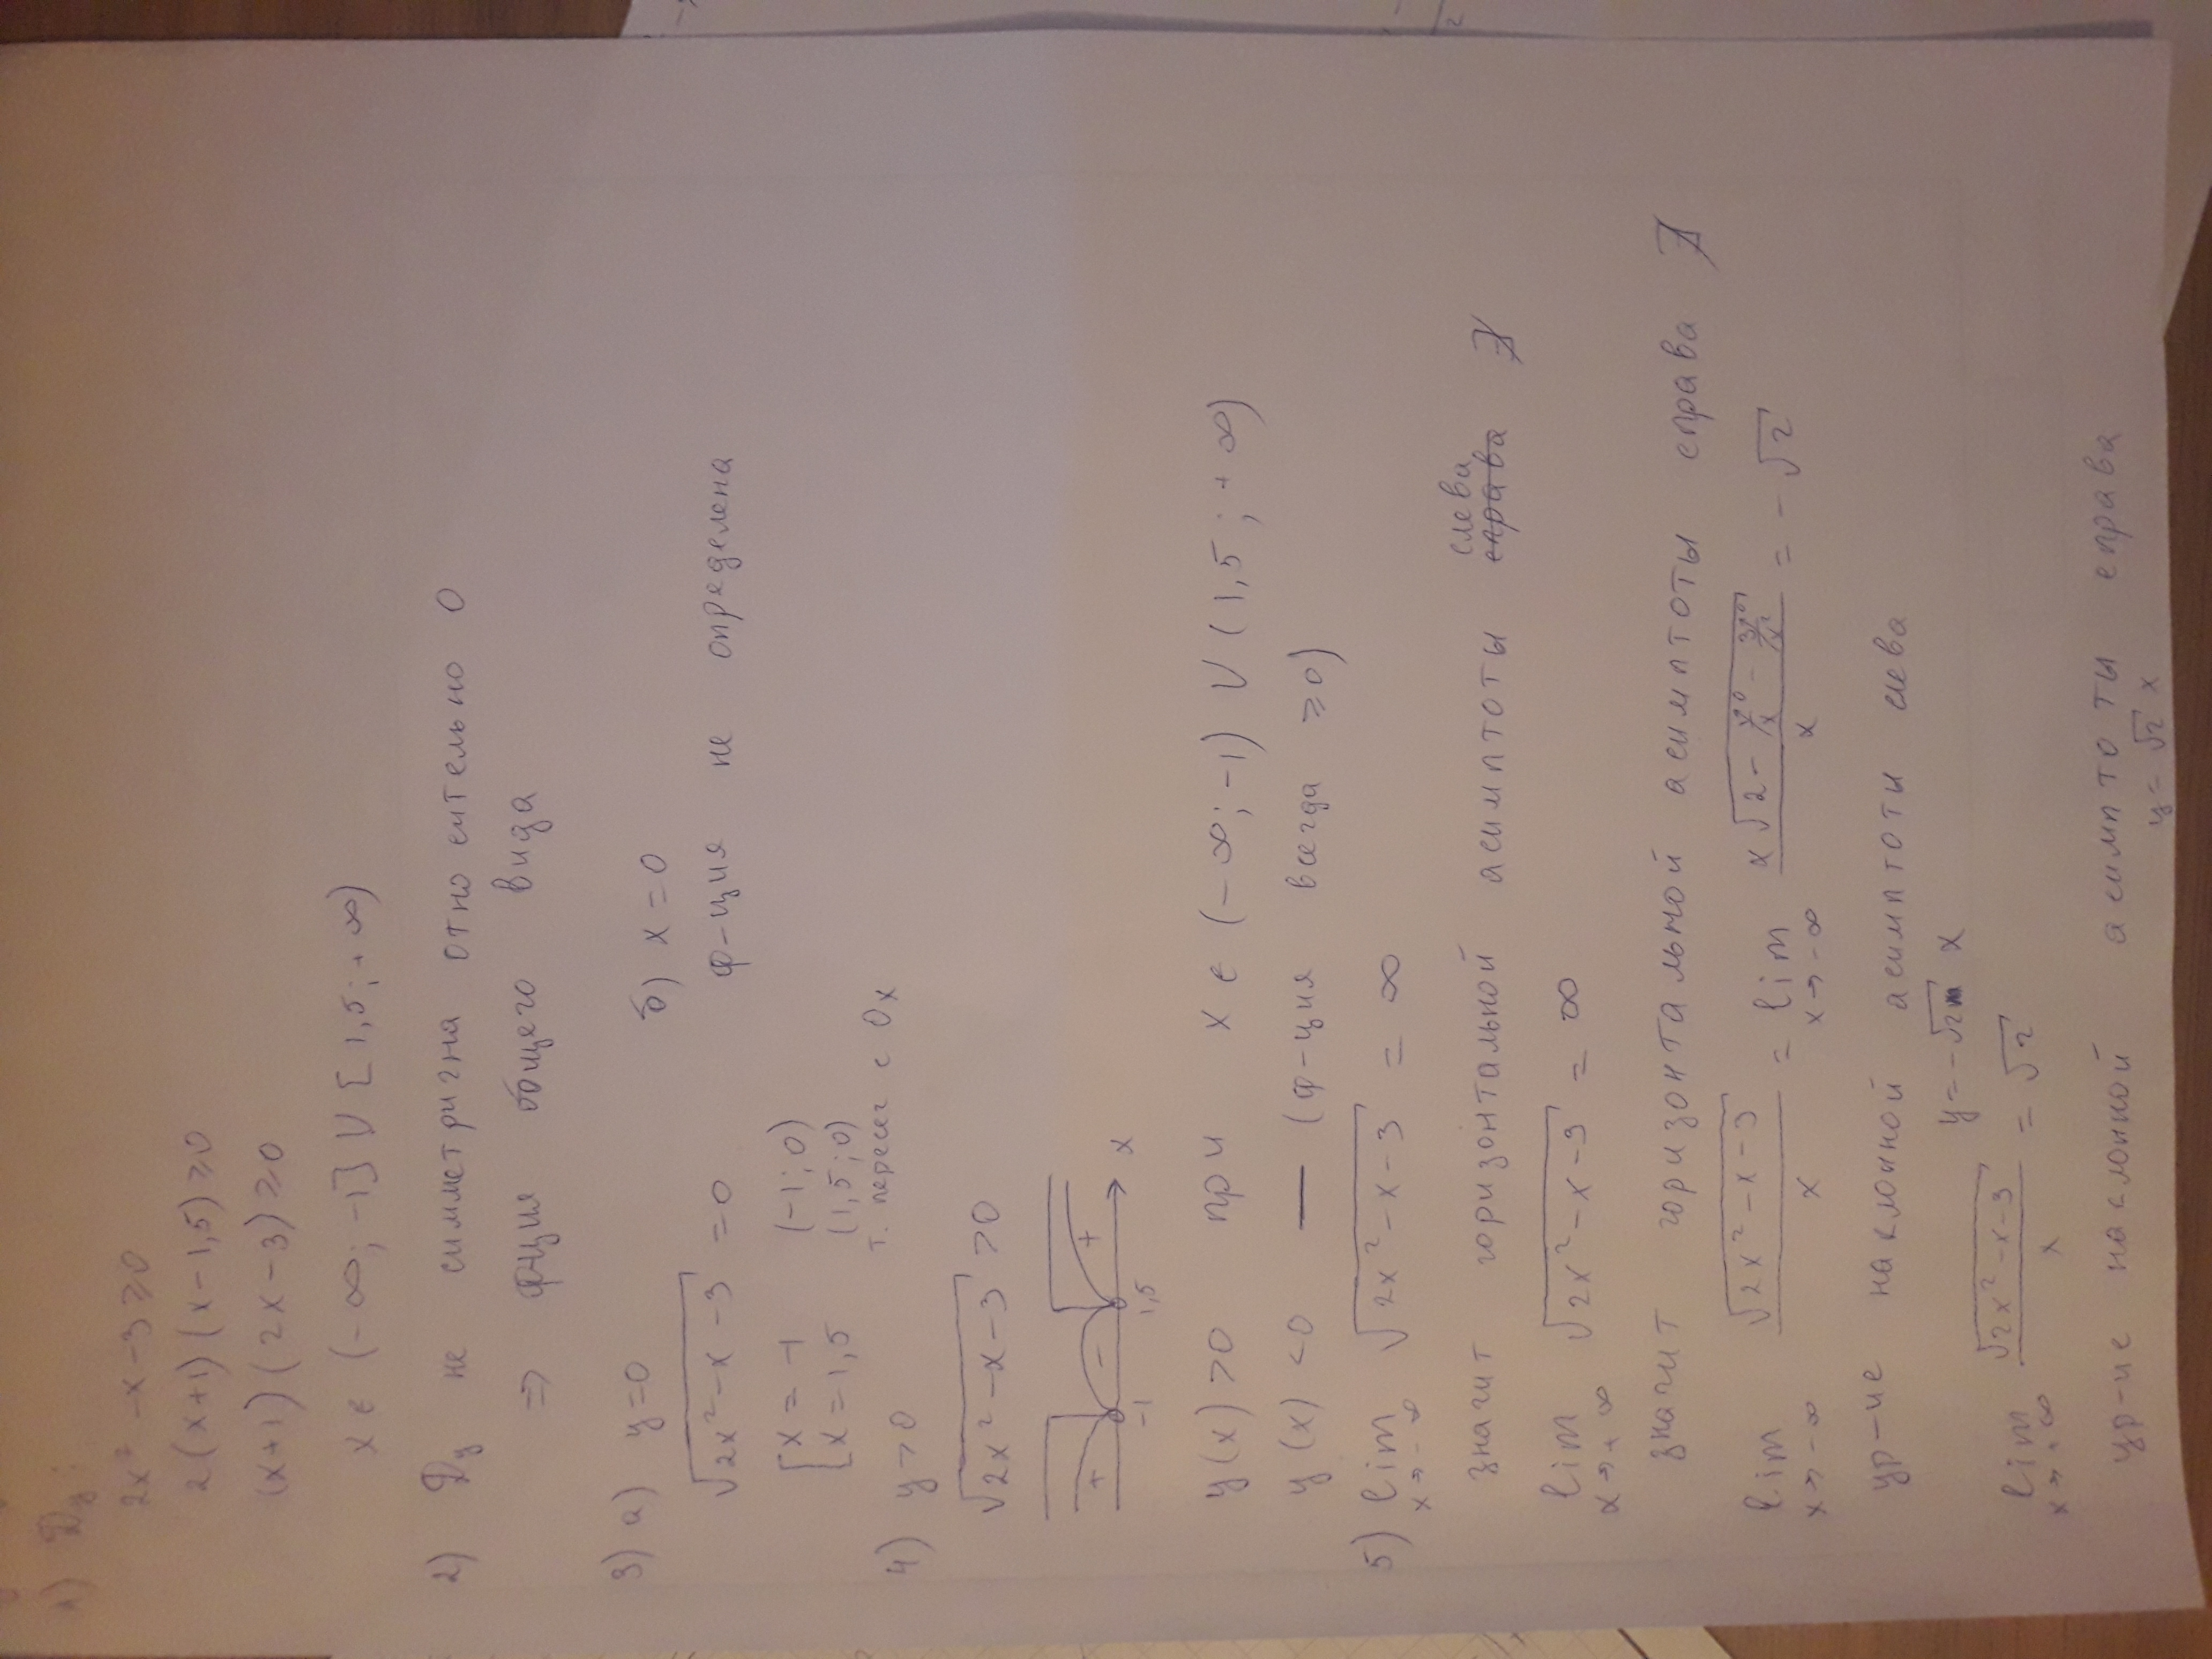 1) Dy:
2x² - x - 3 ≥ 0
2(x+1)(x-1,5) ≥ 0
(x+1)(2x-3) ≥ 0
x ∈ (-∞; -1] ∪ [1,5; +∞)
2) Dy не симметрична относительно 0
⇒ фция общего вида
3) а) y=0
√(2x² - x - 3) = 0
[x = -1 (-1; 0)
[x = 1,5 (1,5; 0)
т. пересеч с Ox
б) x = 0
ф-ция не определена
4) y > 0
√(2x² - x - 3) > 0
+ - + x
-1 1,5
y(x) > 0 при x ∈ (-∞; -1) ∪ (1,5; +∞)
y(x) < 0 — (ф-ция всегда ≥ 0)
5) lim x→-∞ √(2x² - x - 3) = ∞
значит горизонтальной асимптоты слева ∄
lim x→+∞ √(2x² - x - 3) = ∞
значит горизонтальной асимптоты справа ∄
lim x→-∞ √(2x² - x - 3)/x = lim x→-∞ x√(2 - 1/x - 3/x²)/x = -√2
ур-ие наклонной асимптоты слева
y = -√2 x
lim x→+∞ √(2x² - x - 3)/x = √2
ур-ие наклонной асимптоты справа
y = √2 x